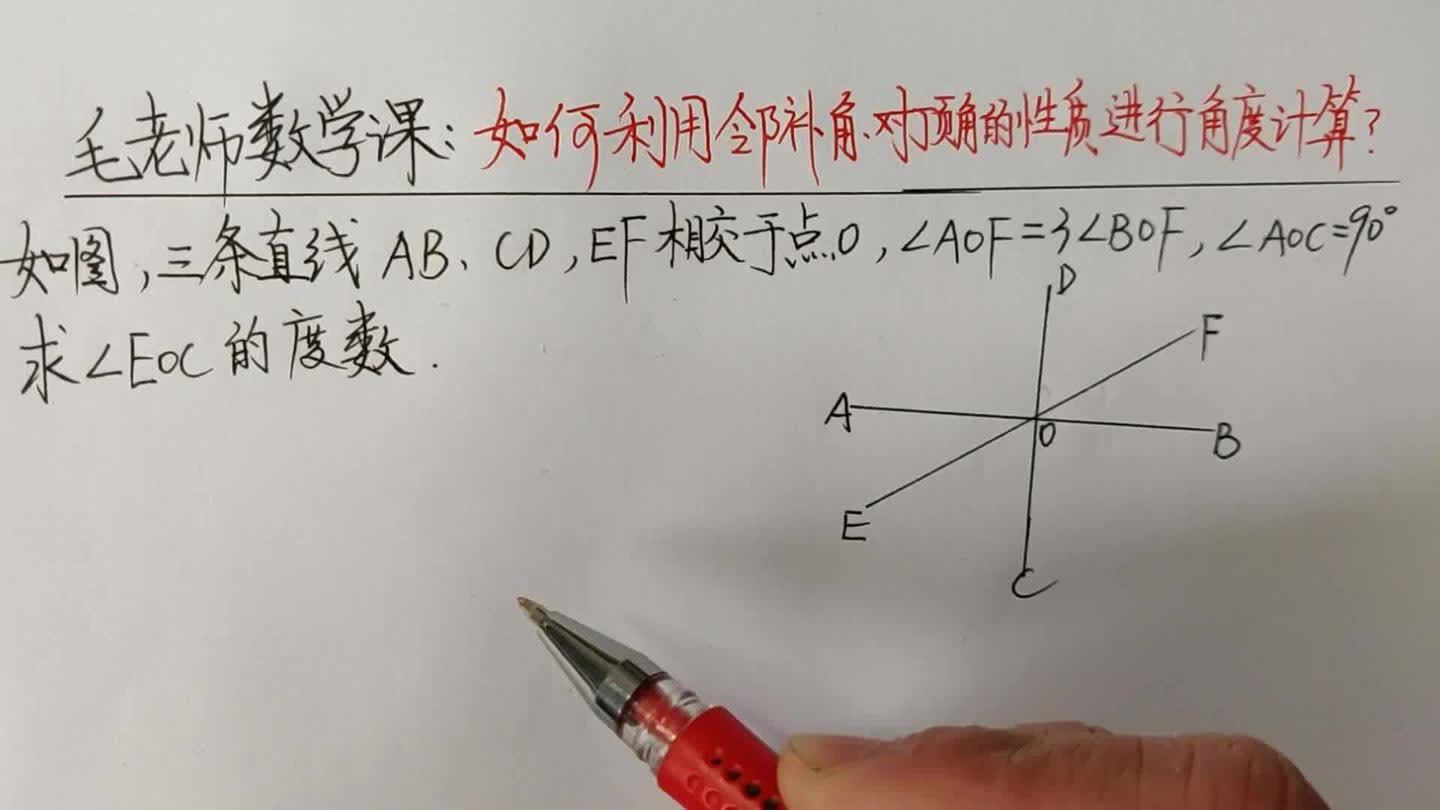 毛老师数学课：如何利用邻补角、对顶角的性质进行角度计算？
如图，三条直线 AB、CD，EF相交于点O，∠AOF=3∠BOF，∠AOC=90°
求∠EOC的度数．
D
F
A
O
B
E
C